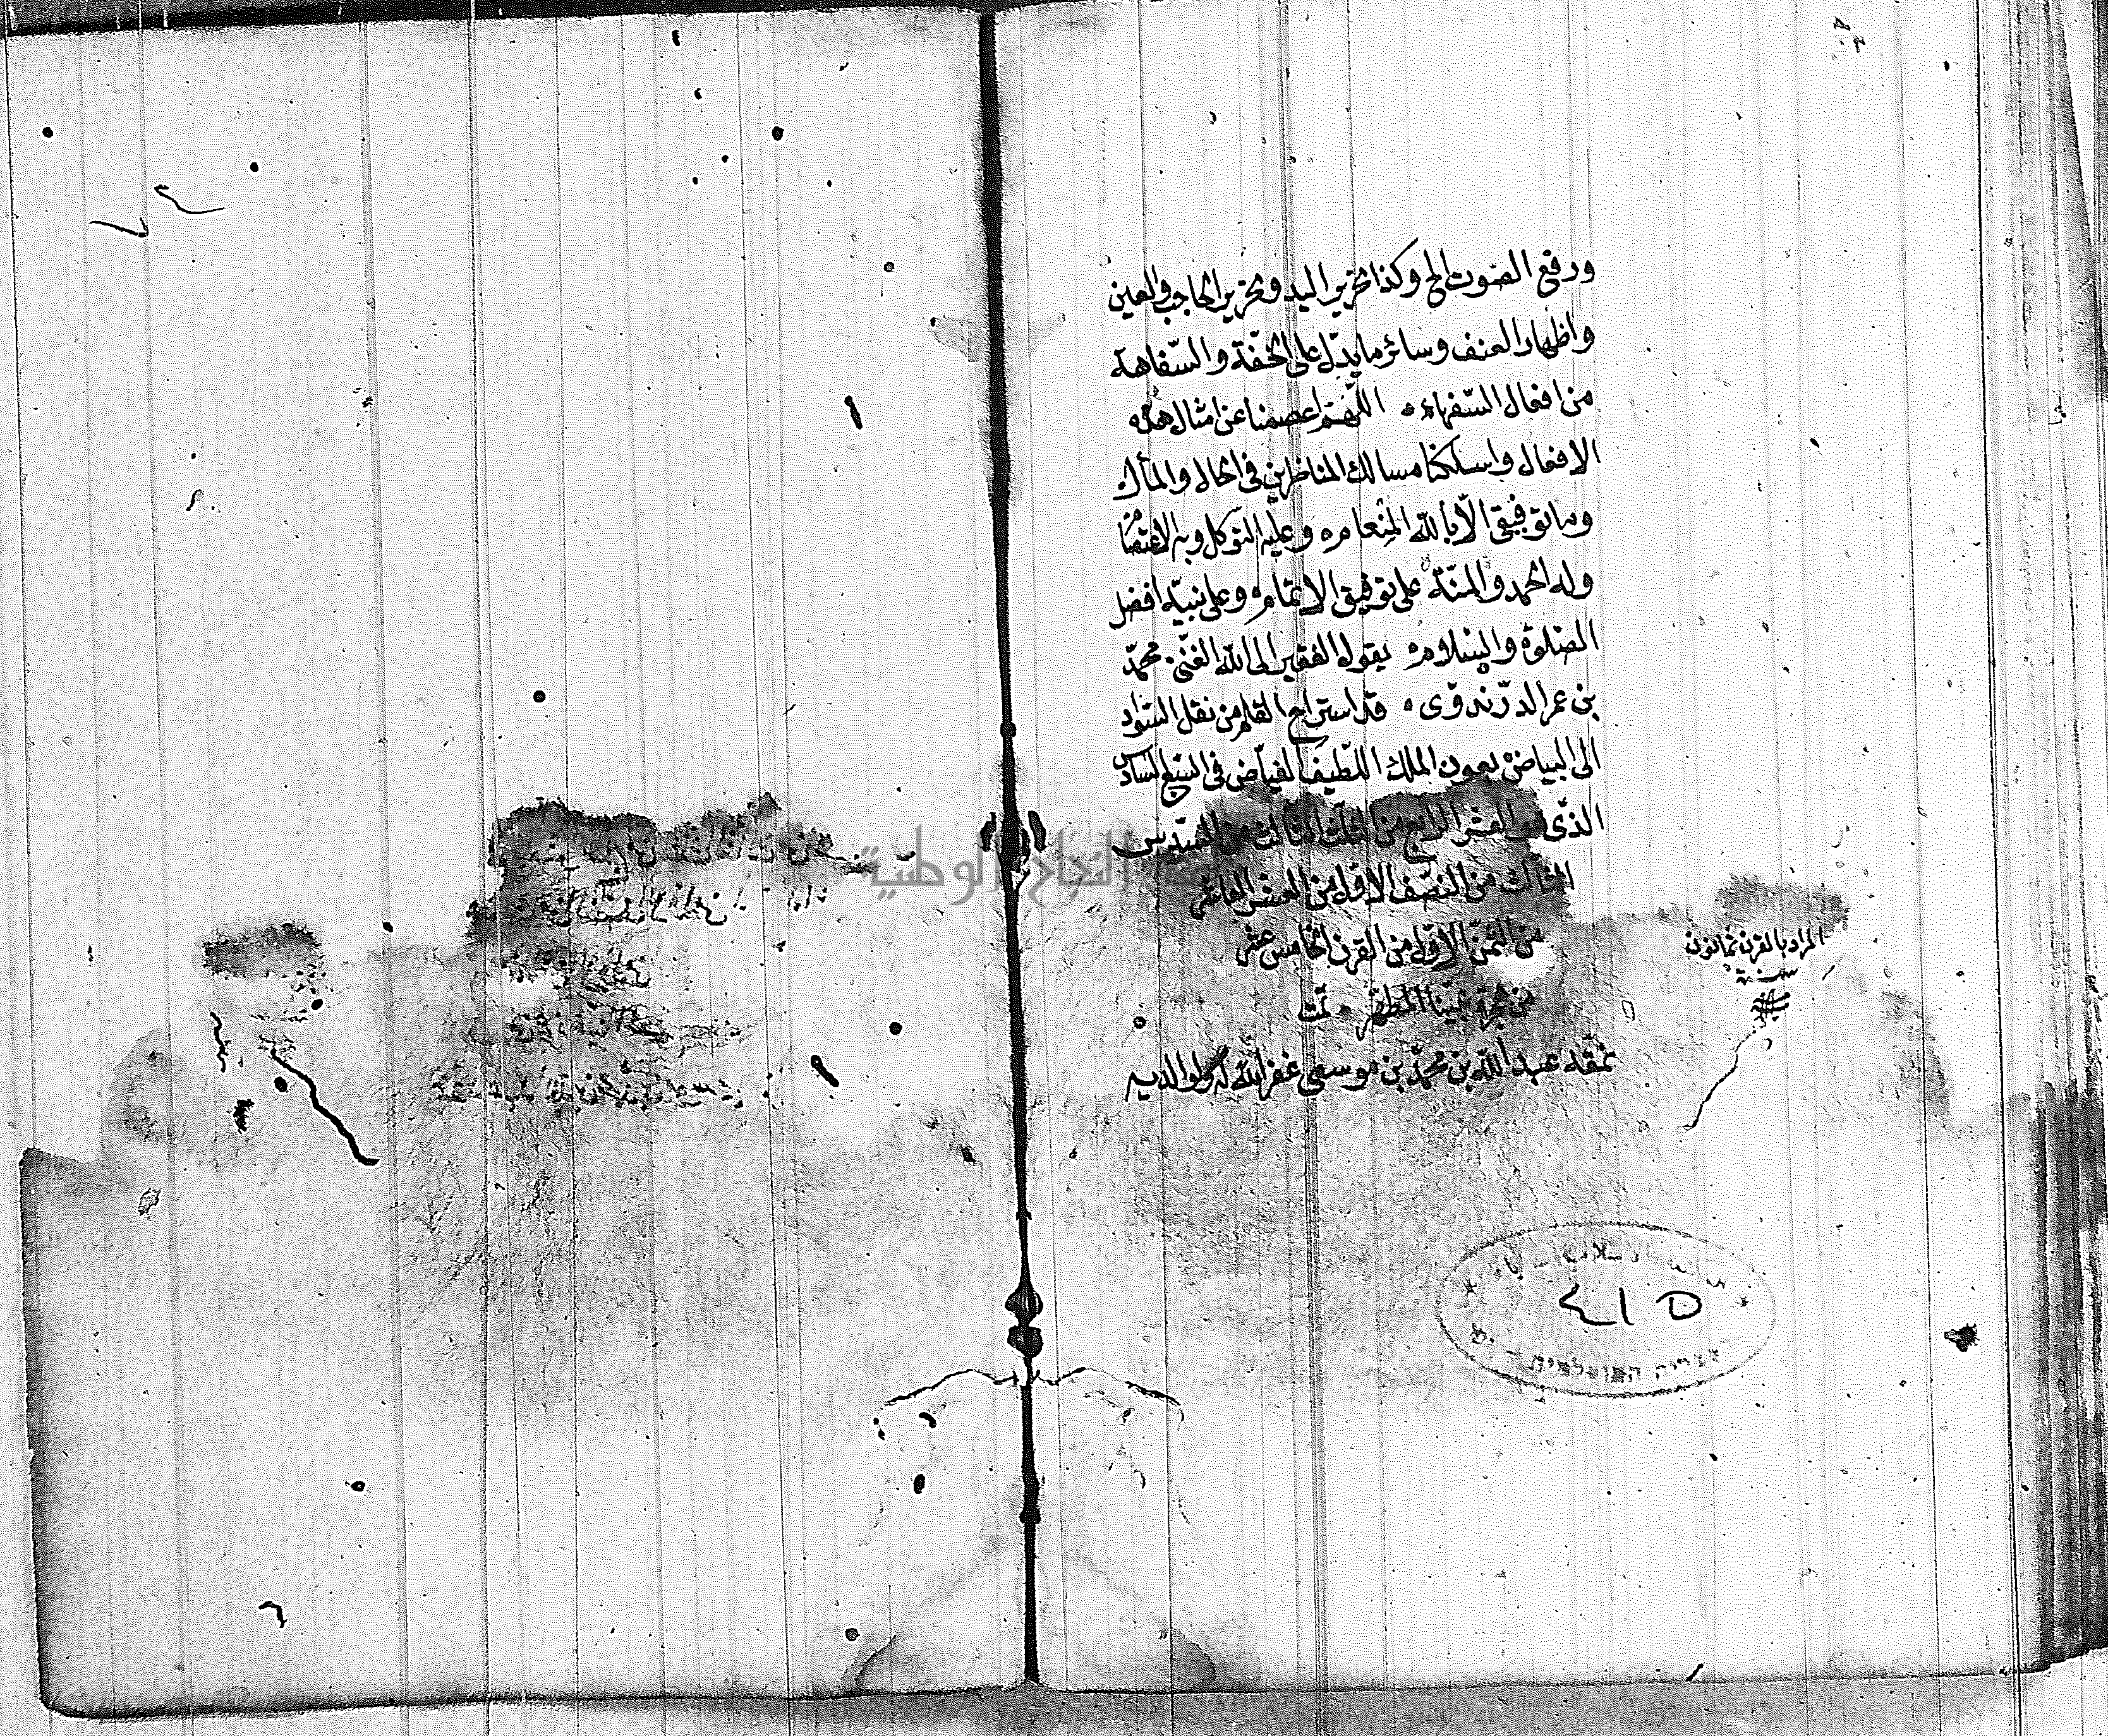 ورفع الصوت الخ وكذا تحريك اليد وتحريك الحاجب والعين
واظهار العنف وسائر ما يدل على الخفّة والسّفاهة
من افعال السّفهاء اللّهمّ اعصمنا عن امثال هذه
الافعال واسلكنا مسالك المناظرين فى الحال والمآل
وما توفيقى الّا بالله المنعام وعليه التوكل وبه الاعتصام
وله الحمد والمنّة على توفيق الاتمام وعلى نبيّه افضل
الصلوة والسلام يقول الفقير الى الله الغنّى محمّد
بن عمر الدرّندوّى قد استراح القلم من نقل السّواد
الى البياض بعون الملك اللّطيف الفيّاض فى السّبع السّادس
الذّى العشر الرابع من الثلث الثالث من السّدس
الثالث من النصف الاوّل من العشر العاشر
من الثمن الاوّل من القرن الخامس عشر
من هجرة نبيّنا المطهّر تمت
نمقه عبد الله بن محمّد بن موسى غفر الله له ولوالديه
المراد بالقرن ثمانون
سنة
٤١٥
النجاح الوطنية